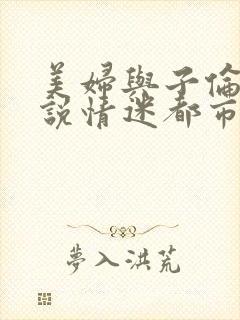 美婦與子倫
說情迷都市
夢入洪荒